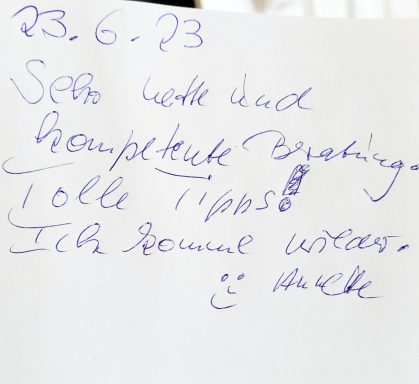 23.6.23
Sehr nette und
kompetente Beratung.
Tolle Tipps!
Ich komme wieder.
Annette